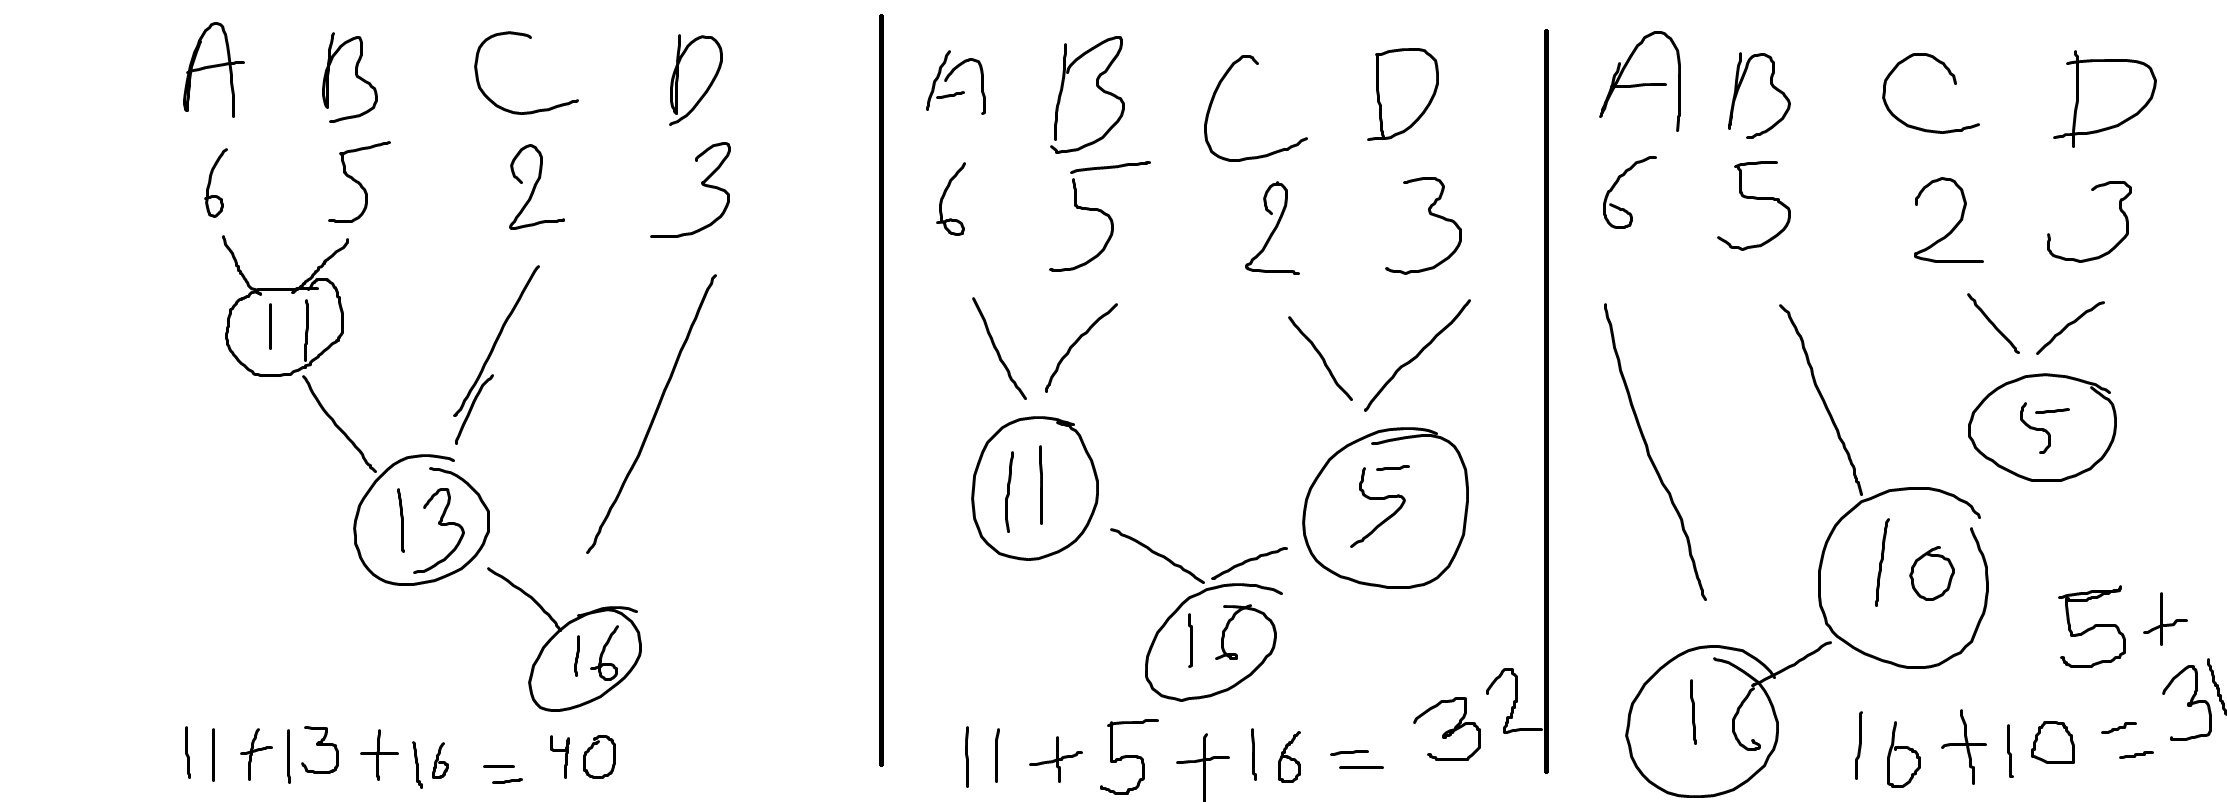 A B C D
6 5 2 3
11
13
16
11+13+16=40
A B C D
6 5 2 3
11 5
16
11+5+16=32
A B C D
6 5 2 3
5
10
16
5+
16+10=31